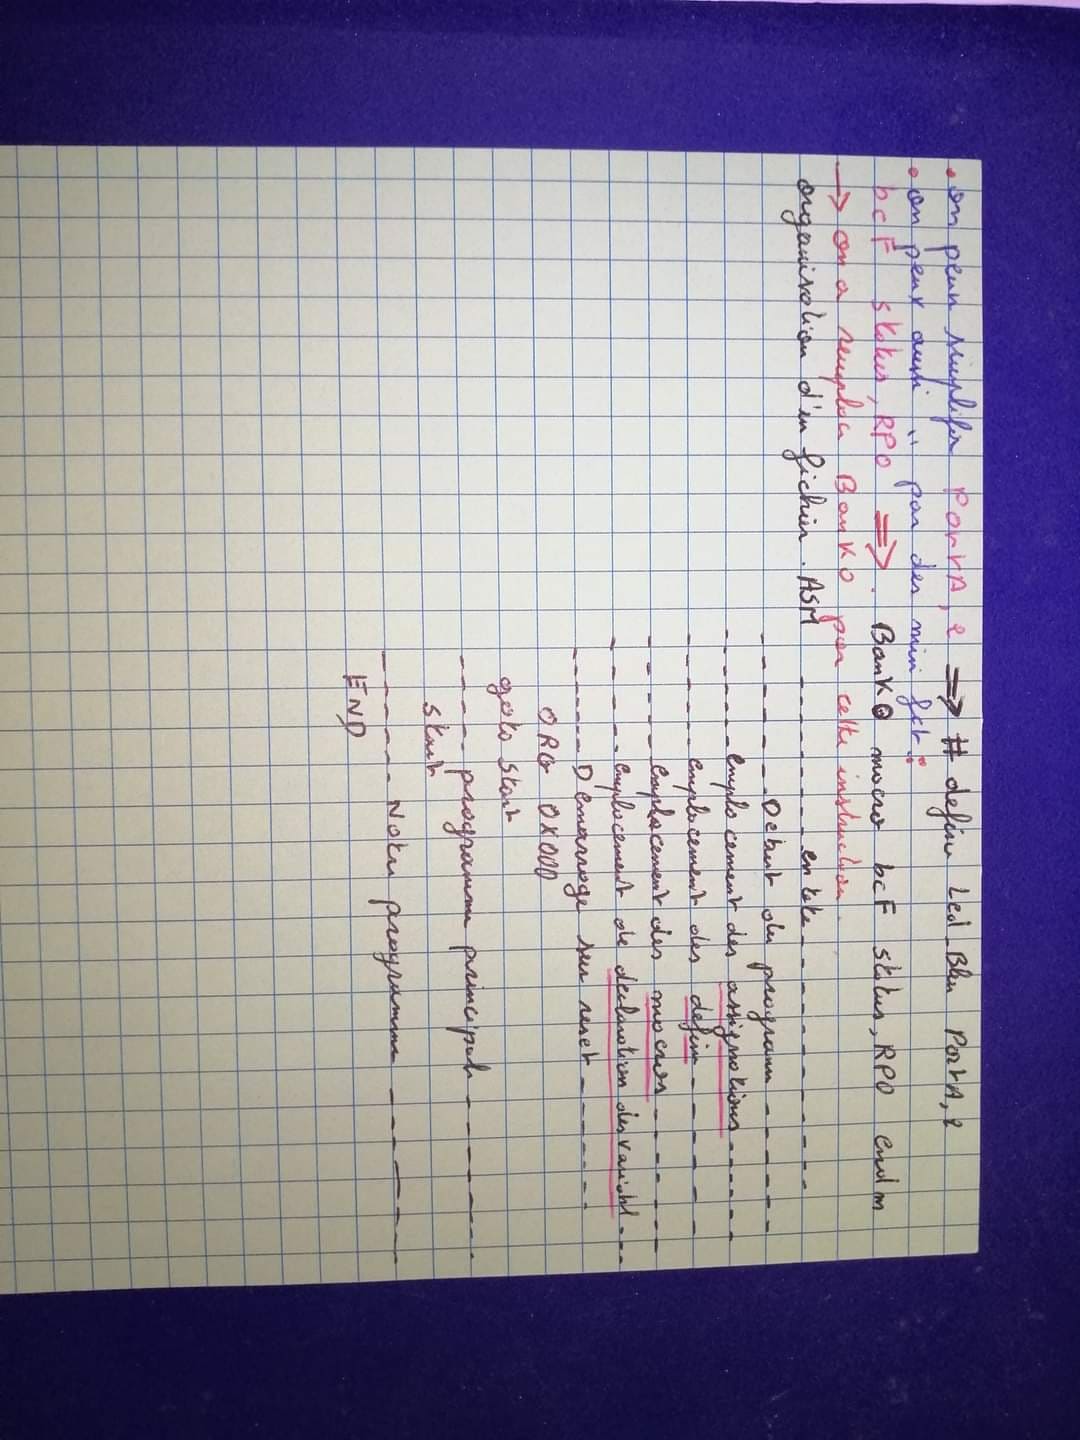 . on peux simplifier PortA, 2 ⇒ # define Led_Bleu PortA, 2
. on peux aussi " par des mini fct :
bcF status, RPO ⇒ . BanKO macro bcF status, RPO endm
→ on a remplacé BanKO par cette instruction.
organisation d'un fichier . ASM
- - - - - - - en tete - - - - - - - -
- - - - - Debut du programme - - - - -
- - - - - emplacement des assignations - - - - -
- - - - - emplacement des define - - - - -
- - - - - emplacement des macros - - - - -
- - - - - emplacement de declaration des variabl - - -
- - - - - Demarrage sur reset - - - - -
ORG 0x000
goto Start
- - - - - programme principal - - - - -
Start
- - - - - Notre programme - - - - -
END